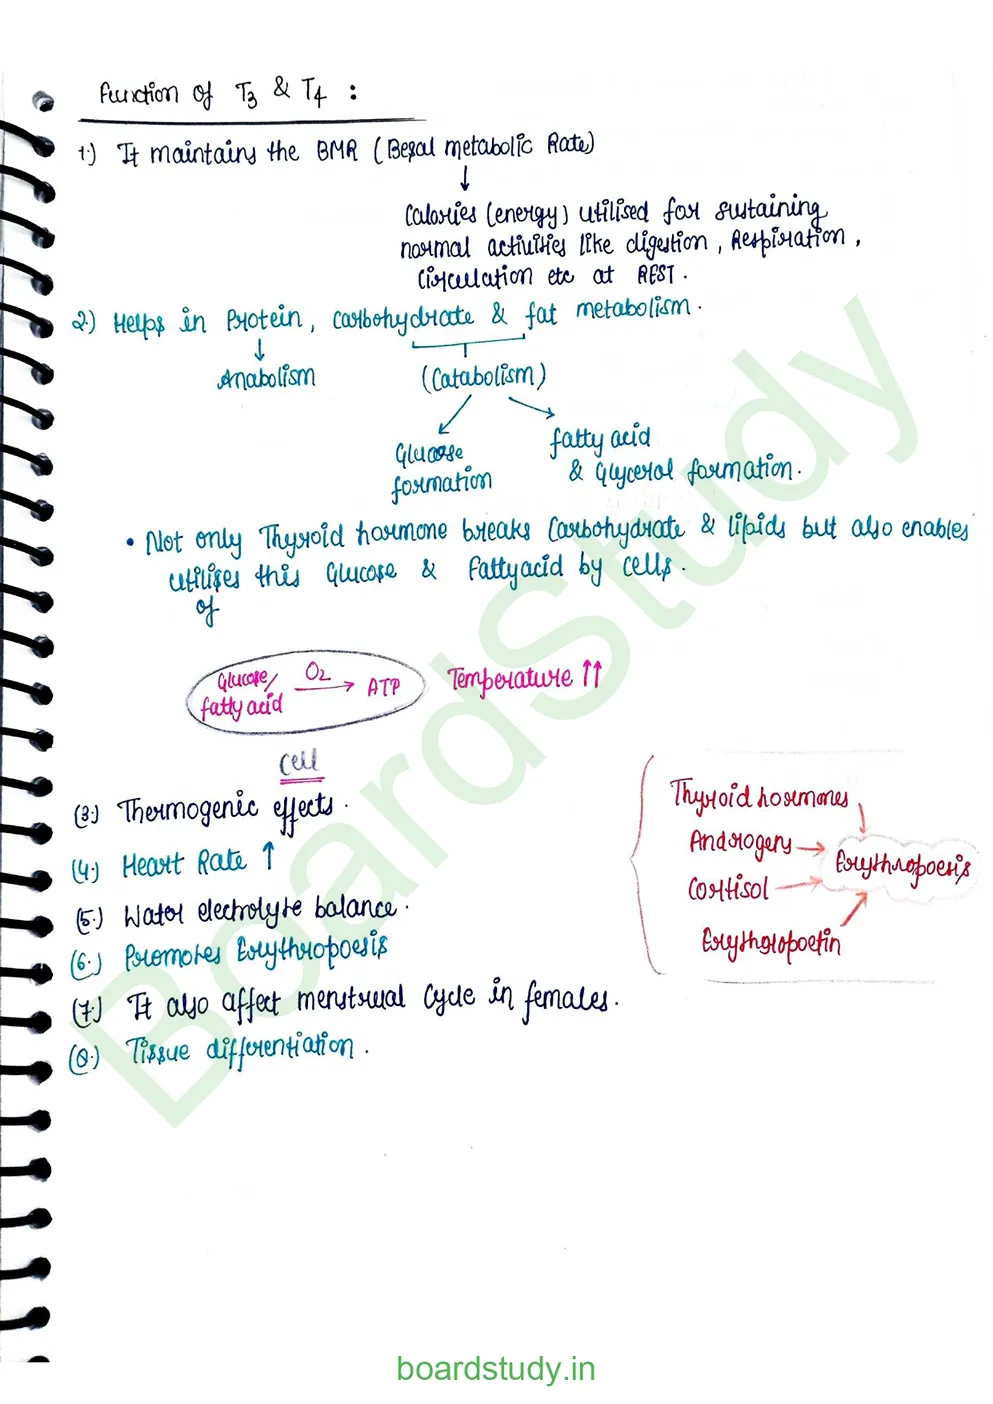 Function of T3 & T4 :
1.) It maintains the BMR (Besal metabolic Rate)
↓
Calories (energy) utilised for sustaining
normal activities like digestion, Respiration,
Circulation etc at REST.
2.) Helps in Protein, Carbohydrate & fat metabolism.
↓
Anabolism (Catabolism)
Glucose formation
fatty acid
& Glycerol formation.
• Not only Thyroid hormone breaks Carbohydrate & lipids but also enables
utilises this Glucose & Fattyacid by cells.
of
Glucose/ fatty acid O2 → ATP Temperature ↑↑
Cell
(3.) Thermogenic effects.
(4.) Heart Rate ↑
(5.) Water electrolyte balance.
(6.) Promotes Erythropoesis
(7.) It also affect menstrual cycle in females.
(8.) Tissue differentiation.
Thyroid hormones
Androgens → Erythropoesis
Cortisol →
Erythropoetin
BoardStudy
boardstudy.in